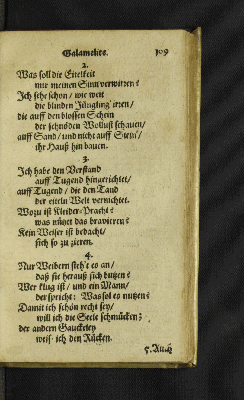 Galamelite. 109
2.
Was soll die Eitelkeit
mir meinen Sinn verwirren?
Ich sehe schon / wie weit
die blinden Jüngling' irren /
die auff den blossen Schein
der schnöden Wollust schauen /
auff Sand / und nicht auff Stein /
ihr Hauß hin bauen.
3.
Ich habe den Verstand
auff Tugend hingerichtet /
auff Tugend / die den Tand
der eiteln Welt vernichtet.
Wozu ist Kleider-Pracht?
was nützet das bravieren?
Kein Weiser ist bedacht /
sich so zu zieren.
4.
Nur Weibern steh't es an /
daß sie herauß sich butzen?
Wer klug ist / und ein Mann /
der spricht: Was sol es nutzen?
Damit ich schön recht sey /
will ich die Seele schmücken;
der andern Gauckeley
weis' ich den Rücken.
5. Auch